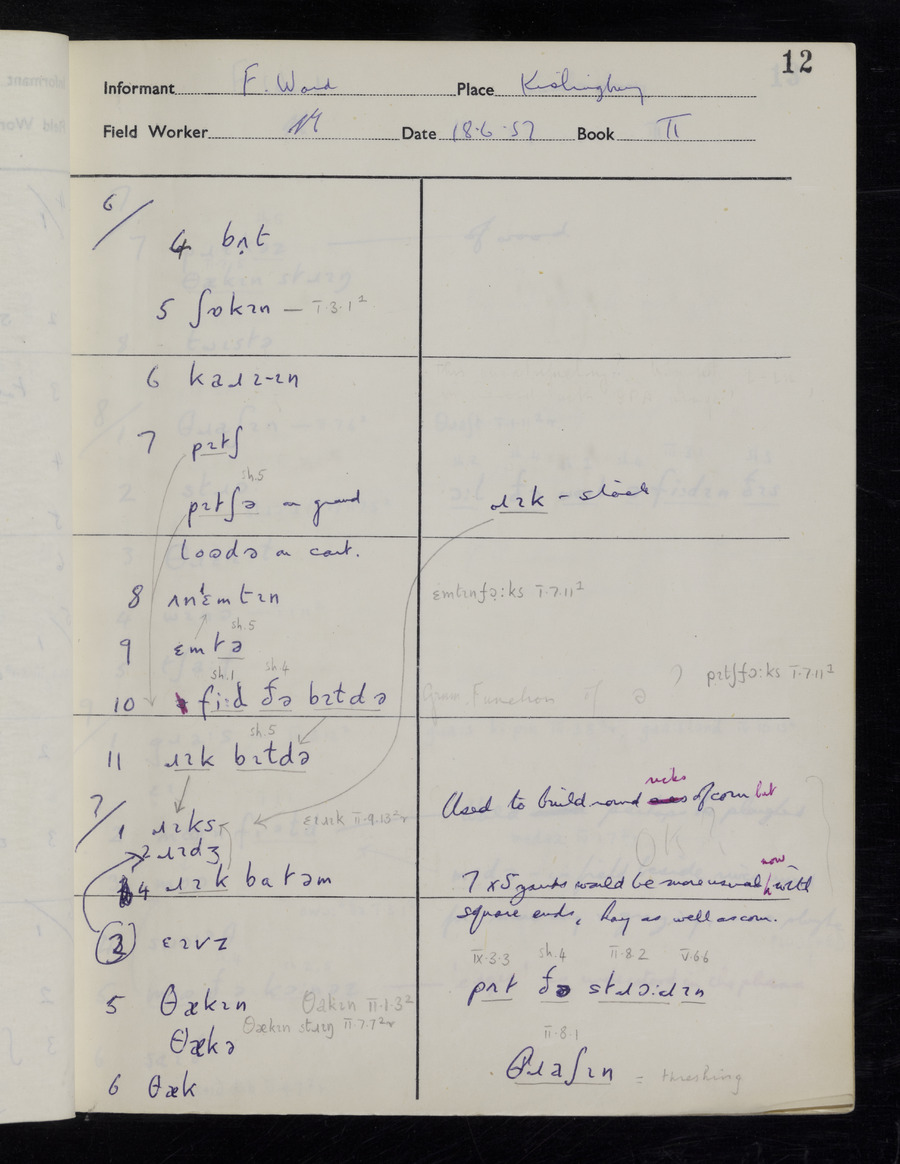 12
Informant F. Ward Place Kislingbury
Field Worker Date 18.6.57 Book II
6/
4 bʌ̣t
5 ʃɒkɪn — II.3.1²
6 kaɹɪ-ɪn
7 pɪtʃ
sh.5
pɪtʃə on ground
ɹɪk - stack
loədə on cart.
8 ʌnˈɛmtɪn
ɛmtɪnfɔ̣:ks II.7.11²
sh.5
9 ɛmtə
sh.1 sh.4
) pɪtʃfɔ:ks II.7.11²
10 fi:d ðə bɪtdə
Gram. Function of ə
sh.5
11 ɹɪk bɪtdə
7/
1 ɹɪks
ɛɪɹɪk II.9.13²
Used to build round ricks of corn but
2 ɹɪdʒ
OK
4 ɹɪk batəm
7 x 5 yards would be more usual now with
square ends, hay as well as corn.
3 ɛɪvz
IX.3.3 sh.4 II.8.2 V.6.6
pʌt ðə stɹɔ:ɪn
5 θækɪn θækɪn II.1.3²
θækɪn stɹɪŋ II.7.7²
θækə
II.8.1
θɹaʃɪn = threshing
6 θæk